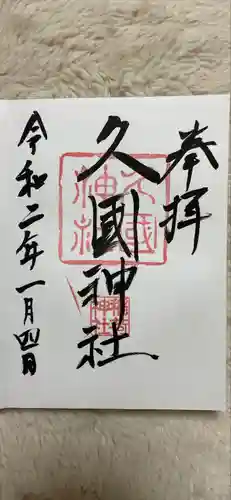 奉拝
久國神社
令和二年一月四日
久國
神社
稲荷
神社